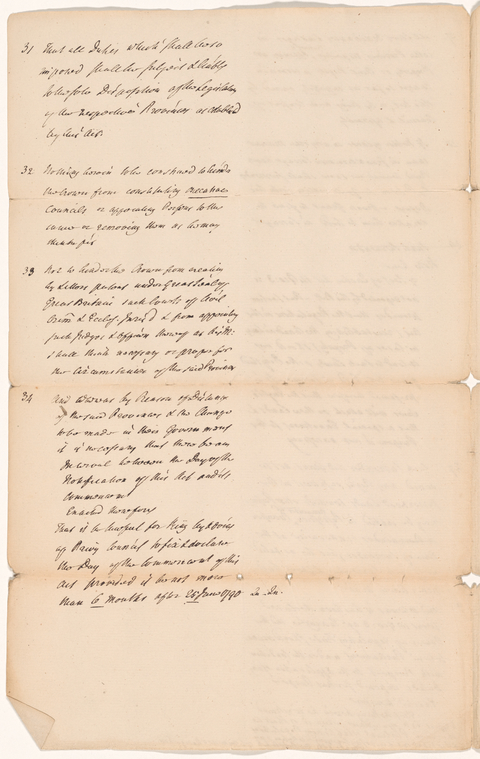 31 That all Duties which shall be so
imposed shall be subject & liable
to the sole Disposition of the Legislature
of the respective Provinces as established
by this Act.
32 Nothing herein to be construed to hinder
the Crown from constituting executive
Councils or appointing Persons to the
same or removing them as he may
think fit
33 Not to hinder the Crown from creating
by Letters patent under Great Seal of
Great Britain such Courts of Civil
Crim & Eccles. Jurisd & from appointing
such Judges & Officers thereof as
shall think necessary or proper for
the Circumstances of the said Province
34 And whereas by Reason of Distance
of the said Provinces & the Change
to be made in their Government
it is necessary that there be an
Interval between the Day of the
Notification of this Act and its
Commencemt
Enacted therefore
That it be lawful for King by Advice
of Privy Council to fix & declare
the Day of the Commencemt of this
Act provided it be not more
than 6 Months after 25 June 1790